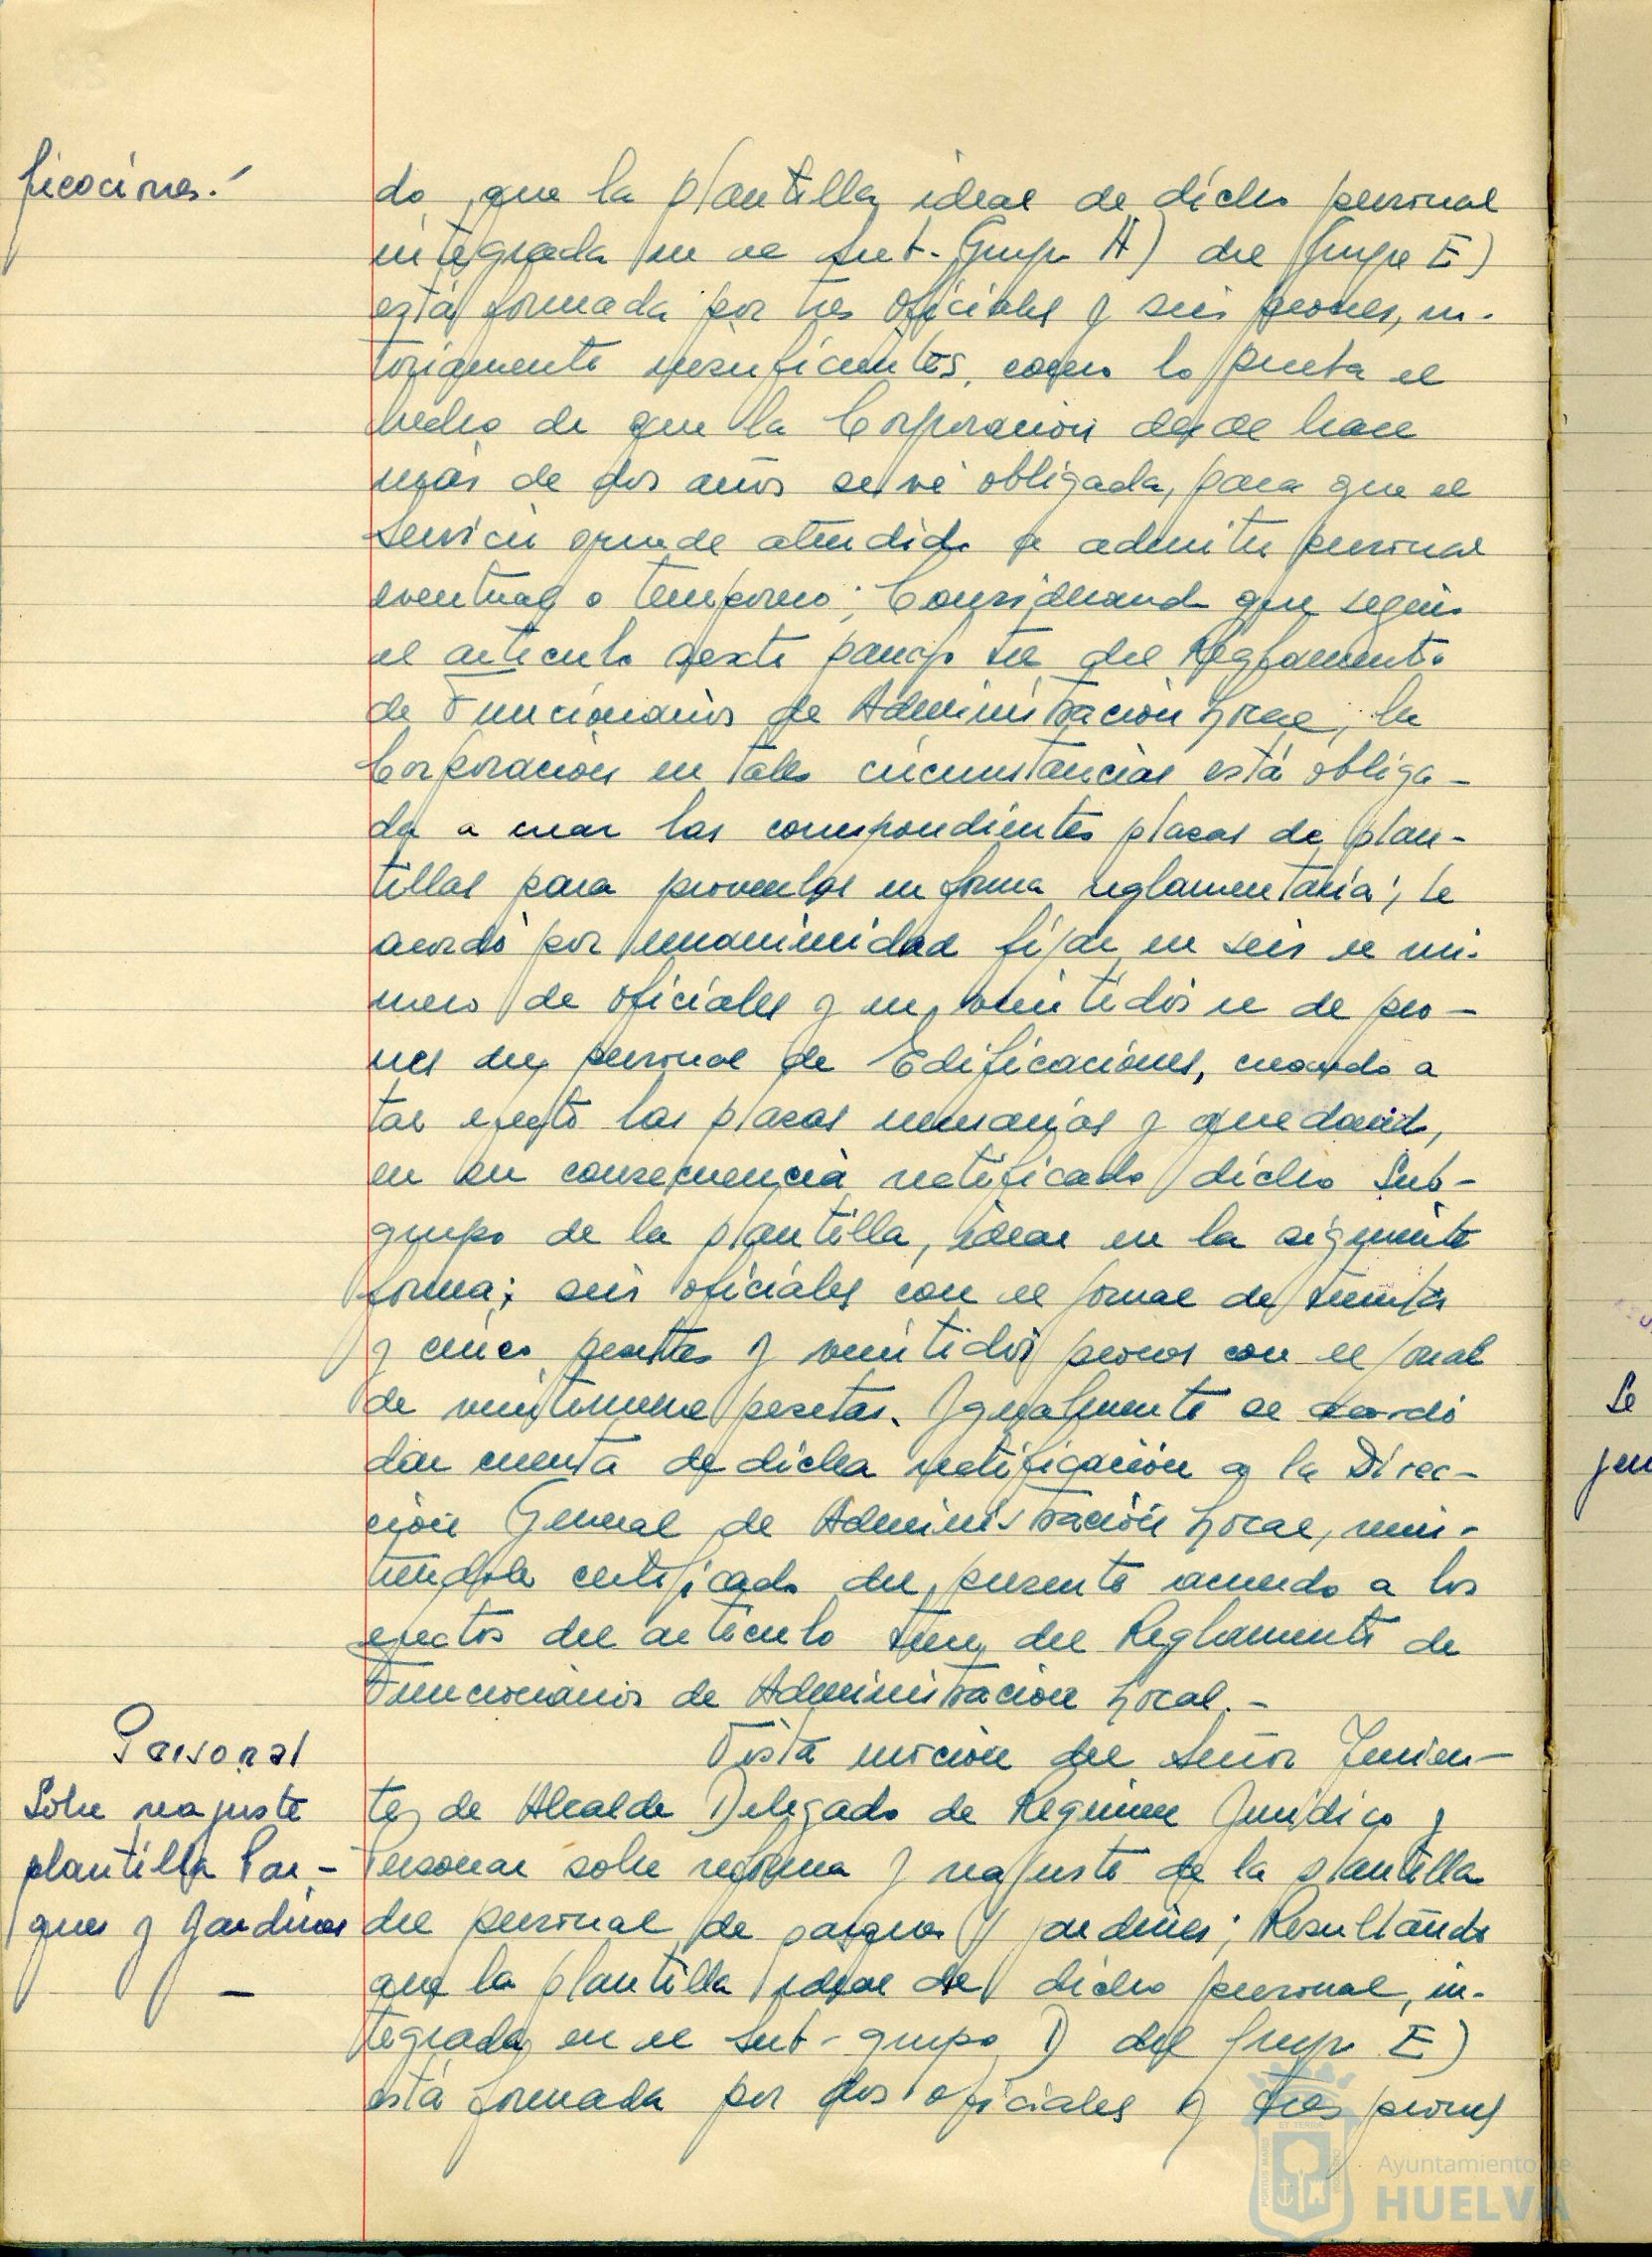 ficaciones.-
do que la plantilla ideal de dicho personal
integrada en el Sub-Grupo A) del Grupo E)
está formada por tres oficiales y seis peones, no-
toriamente insuficientes, como lo prueba el
hecho de que la Corporación desde hace
más de dos años se vé obligada, para que el
servicio quede atendido a admitir personal
eventual o temporero; Considerando que según
el artículo sexto párrafo del Reglamento
de Funcionarios de Administración Local, la
Corporación en tales circunstancias está obliga-
da a crear las correspondientes plazas de plan-
tillas para proveerlas en forma reglamentaria; se
acordó por unanimidad fijar en seis el nú-
mero de oficiales y en veintidós el de peo-
nes del personal de Edificaciones, creando a
tal efecto las plazas necesarias y quedando,
en su consecuencia rectificado dicho Sub-
grupo de la plantilla ideal en la siguiente
forma: seis oficiales con el jornal de treinta
y cinco pesetas y veintidós peones con el jornal
de veintinueve pesetas. Igualmente se acordó
dar cuenta de dicha rectificación a la Direc-
ción General de Administración Local, remi-
tiéndole certificado del presente acuerdo a los
efectos del artículo del Reglamento de
Funcionarios de Administración Local.-
Personal
Sobre reajuste
plantilla Par-
ques y Jardines
-
Vista moción del Señor Tenien-
te de Alcalde Delegado de Régimen Jurídico y
Personal sobre reforma y reajuste de la plantilla
del personal de parques y jardines; Resultando
que la plantilla ideal de dicho personal, in-
tegrada en el Sub-grupo D) del Grupo E)
está formada por dos oficiales y tres peones
Se
Ayuntamiento de
HUELVA